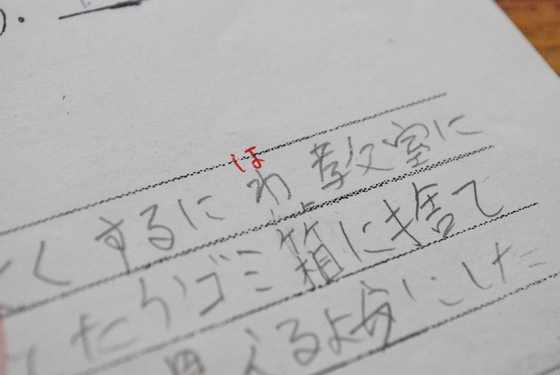 ほ
くするにわ教室に
たらゴミ箱に捨て
思えるようにした